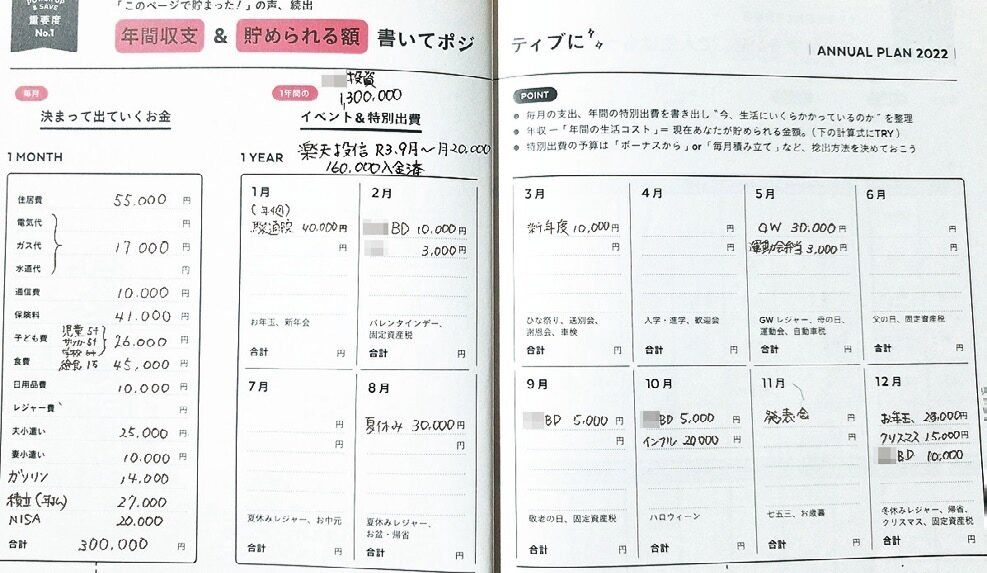 & SAVE
重要度
No.1
「このページで貯まった！」の声、続出
年間収支 & 貯められる額 書いてポジティブに
ANNUAL PLAN 2022
毎月
決まって出ていくお金
1 MONTH
住居費 55.000 円
電気代 円
ガス代 17000 円
水道代 円
通信費 10.000 円
保険料 41.000 円
子ども費 26.000 円
食費 45,000 円
日用品費 10.000 円
レジャー費 円
夫小遣い 25,000 円
妻小遣い 10.000 円
ガソリン 14,000
積立 27.000
NISA 20.000
合計 300,000 円
投資
1,300,000
1年間の
イベント&特別出費
1 YEAR
楽天投信 R3.9月～月20,000
160.000入金済
1月
40.000円
円
お年玉、新年会
合計 円
2月
BD 10,000円
3,000円
バレンタインデー、
固定資産税
合計 円
7月
円
円
夏休みレジャー、お中元
合計 円
8月
夏休み 30,000円
円
夏休みレジャー、
お盆・帰省
合計 円
POINT
毎月の支出、年間の特別出費を書き出し“今、生活にいくらかかっているのか”を整理
年収－「年間の生活コスト」＝ 現在あなたが貯められる金額。（下の計算式にTRY）
特別出費の予算は「ボーナスから」or「毎月積み立て」など、捻出方法を決めておこう
3月
新年度 10,000円
円
ひな祭り、送別会、
謝恩会、車検
合計 円
4月
円
円
入学・進学、歓迎会
合計 円
5月
GW 30,000円
運動会弁当 3,000円
GWレジャー、母の日、
運動会、自動車税
合計 円
6月
円
円
父の日、固定資産税
合計 円
9月
BD 5,000円
円
敬老の日、固定資産税
合計 円
10月
BD 5,000円
インフル 20000円
ハロウィーン
合計 円
11月
発表会 円
円
七五三、お歳暮
合計 円
12月
お年玉 円
クリスマス 15,000円
BD 10,000
冬休みレジャー、帰省、
クリスマス、固定資産税
合計 円